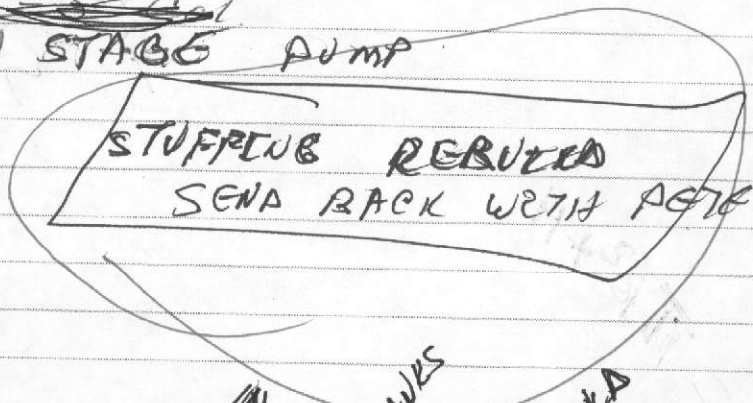 STAGE PUMP
STUFFING REBUILD
SEND BACK WITH PETE